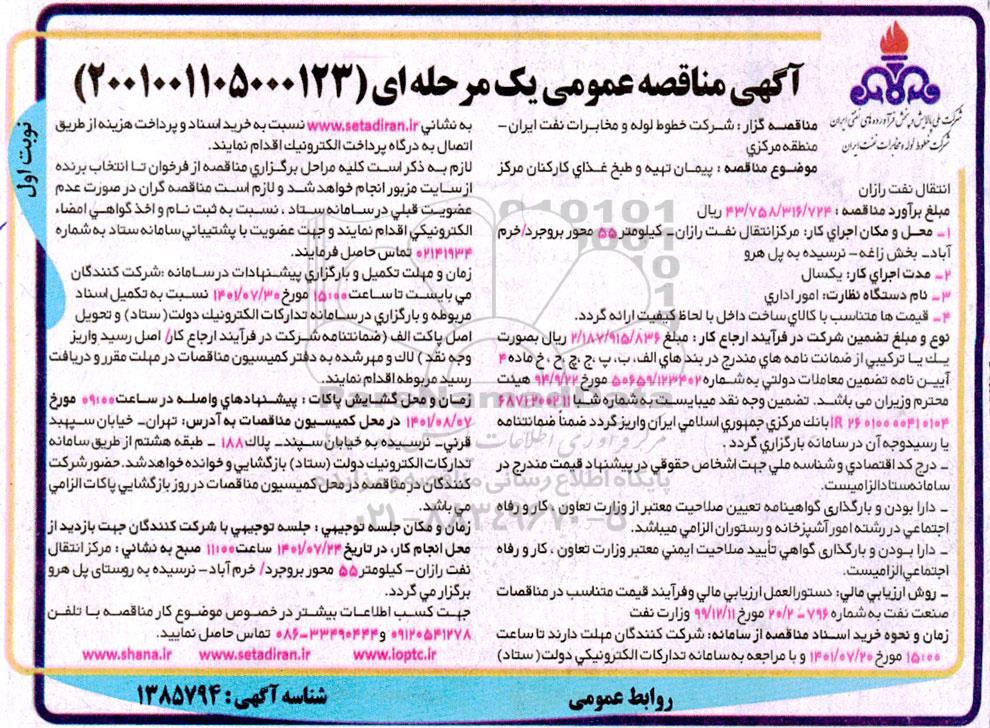 آگهی مناقصه عمومی یک مرحله ای (۲۰۰۱۰۰۱۱۰۵۰۰۰۱۲۳)
شرکت ملی پالایش و پخش فرآورده های نفتی ایران
شرکت خطوط لوله و مخابرات نفت ایران
نوبت اول
مناقصه گزار : شركت خطوط لوله و مخابرات نفت ايران -
منطقه مركزي
موضوع مناقصه : پيمان تهيه و طبخ غذاي كاركنان مركز
انتقال نفت رازان
مبلغ برآورد مناقصه : ۴۳/۷۵۸/۳۱۶/۷۲۴ ريال
۱- محل و مكان اجراي كار: مركز انتقال نفت رازان- كيلومتر ۵۵ محور بروجرد/خرم
آباد- بخش زاغه- نرسيده به پل هرو
۲- مدت اجراي كار: يكسال
۳- نام دستگاه نظارت: امور اداري
۴- قيمت ها متناسب با كالاي ساخت داخل با لحاظ كيفيت ارائه گردد.
نوع و مبلغ تضمين شركت در فرآيند ارجاع كار : مبلغ ۲/۱۸۷/۹۱۵/۸۳۶ ريال بصورت
يك يا تركيبي از ضمانت نامه هاي مندرج در بند هاي الف، ب، پ ،ج ،چ ،ح ، خ ماده ۴
آيين نامه تضمين معاملات دولتي به شماره ۵۰۶۵۹/۱۲۳۴۰۲ مورخ ۹۴/۹/۲۲ هيئت
محترم وزيران مي باشد. تضمين وجه نقد ميبايست به شماره شبا ۶۸۷۱۲۰۰۲۱۱
IR ۲۶ ۰۱۰۰ ۰۰۴۱ ۰۱۰۴ بانك مركزي جمهوري اسلامي ايران واريز گردد ضمناً ضمانتنامه
يا رسيد وجه آن در سامانه بارگزاري گردد .
- درج كد اقتصادي و شناسه ملي جهت اشخاص حقوقي در پيشنهاد قيمت مندرج در
سامانه ستاد الزاميست.
- دارا بودن و بارگذاری گواهينامه تعيين صلاحيت معتبر از وزارت تعاون ، كار و رفاه
اجتماعي در رشته امور آشپزخانه و رستوران الزامي ميباشد.
- دارا بودن و بارگذاری گواهي تأييد صلاحيت ايمني معتبر وزارت تعاون ، كار و رفاه
اجتماعي الزاميست.
- روش ارزيابي مالي: دستورالعمل ارزيابي مالي و فرآيند قيمت متناسب در مناقصات
صنعت نفت به شماره ۷۹۶-۲۰/۲ مورخ ۹۹/۱۲/۱۱ وزارت نفت
زمان و نحوه خريد اسناد مناقصه از سامانه: شركت كنندگان مهلت دارند تا ساعت
۱۵:۰۰ مورخ ۱۴۰۱/۰۷/۲۰ و با مراجعه به سامانه تداركات الكترونيكي دولت ( ستاد)
به نشاني www.setadiran.ir نسبت به خريد اسناد و پرداخت هزينه از طريق
اتصال به درگاه پرداخت الكترونيك اقدام نمايند.
لازم به ذكر است كليه مراحل برگزاري مناقصه از فرخوان تا انتخاب برنده
از سايت مزبور انجام خواهد شد و لازم است مناقصه گران در صورت عدم
عضويت قبلي در سامانه ستاد ، نسبت به ثبت نام و اخذ گواهي امضاء
الكترونيكي اقدام نمايند و جهت عضويت با پشتيباني سامانه ستاد به شماره
۰۲۱۴۱۹۳۴ تماس حاصل فرمايند.
زمان و مهلت تكميل و بارگزاري پيشنهادات در سامانه :شركت كنندگان
مي بايست تا ساعت ۱۵:۰۰ مورخ ۱۴۰۱/۰۷/۳۰ نسبت به تكميل اسناد
مربوطه و بارگزاري در سامانه تداركات الكترونيك دولت( ستاد) و تحويل
اصل پاكت الف ( ضمانتنامه شركت در فرآيند ارجاع كار/ اصل رسيد واريز
وجه نقد ) لاك و مهر شده به دفتر كميسيون مناقصات در مهلت مقرر و دريافت
رسيد مربوطه اقدام نمايند.
زمان و محل گشايش پاكات : پيشنهادهاي واصله در ساعت ۰۹:۰۰ مورخ
۱۴۰۱/۰۸/۰۷ در محل كميسيون مناقصات به آدرس: تهران- خيابان سپهبد
قرني- نرسيده به خيابان سپند- پلاك ۱۸۸ - طبقه هشتم از طريق سامانه
تداركات الكترونيك دولت (ستاد) بازگشايي و خوانده خواهد شد. حضور شركت
كنندگان در مناقصه در محل كميسيون مناقصات در روز بازگشايي پاكات الزامي
مي باشد.
زمان و مكان جلسه توجيهي : جلسه توجيهي با شركت كنندگان جهت بازديد از
محل انجام كار، در تاريخ ۱۴۰۱/۰۷/۲۴ ساعت ۱۱:۰۰ صبح به نشاني : مركز انتقال
نفت رازان- كيلومتر ۵۵ محور بروجرد/ خرم آباد- نرسيده به روستای پل هرو
برگزار مي گردد.
جهت كسب اطلاعات بيشتر در خصوص موضوع كار مناقصه با تلفن
۰۹۱۲۰۵۴۱۲۷۸ و ۳۳۴۹۰۴۴۴-۰۸۶ تماس حاصل نماييد.
www.ioptc.ir www.setadiran.ir www.shana.ir
روابط عمومی
شناسه آگهی : ۱۳۸۵۷۹۴
ParsNamadData
پایگاه اطلاع رسانی مناقصه و مزایده
۰۲۱-۸۸۳۴۹۶۷۰-۵